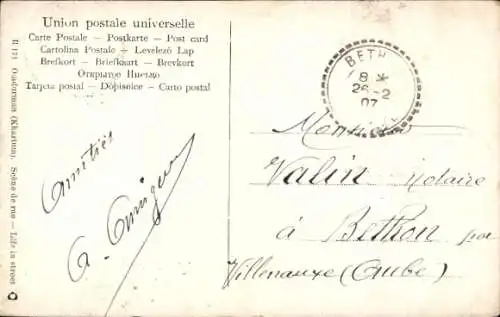 Union postale universelle
Carte Postale — Postkarte — Post card
Cartolina Postale — Levelező Lap
Brefkort — Briefkaart — Brevkort
Открытое Письмо
Tarjeta postal — Dopisnice — Carto postal
R 171 Omdurman (Khartoum). Scène de rue — Life in street
BETH
8 *
26-2
07
Amitiés
Monsieur
Valin notaire
à Bethon par
Villenauxe (Aube)